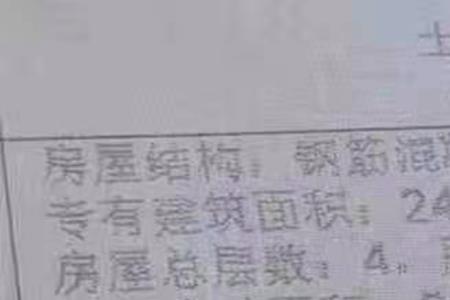 房屋结构：钢筋混
专有建筑面积：24
房屋总层数：4，